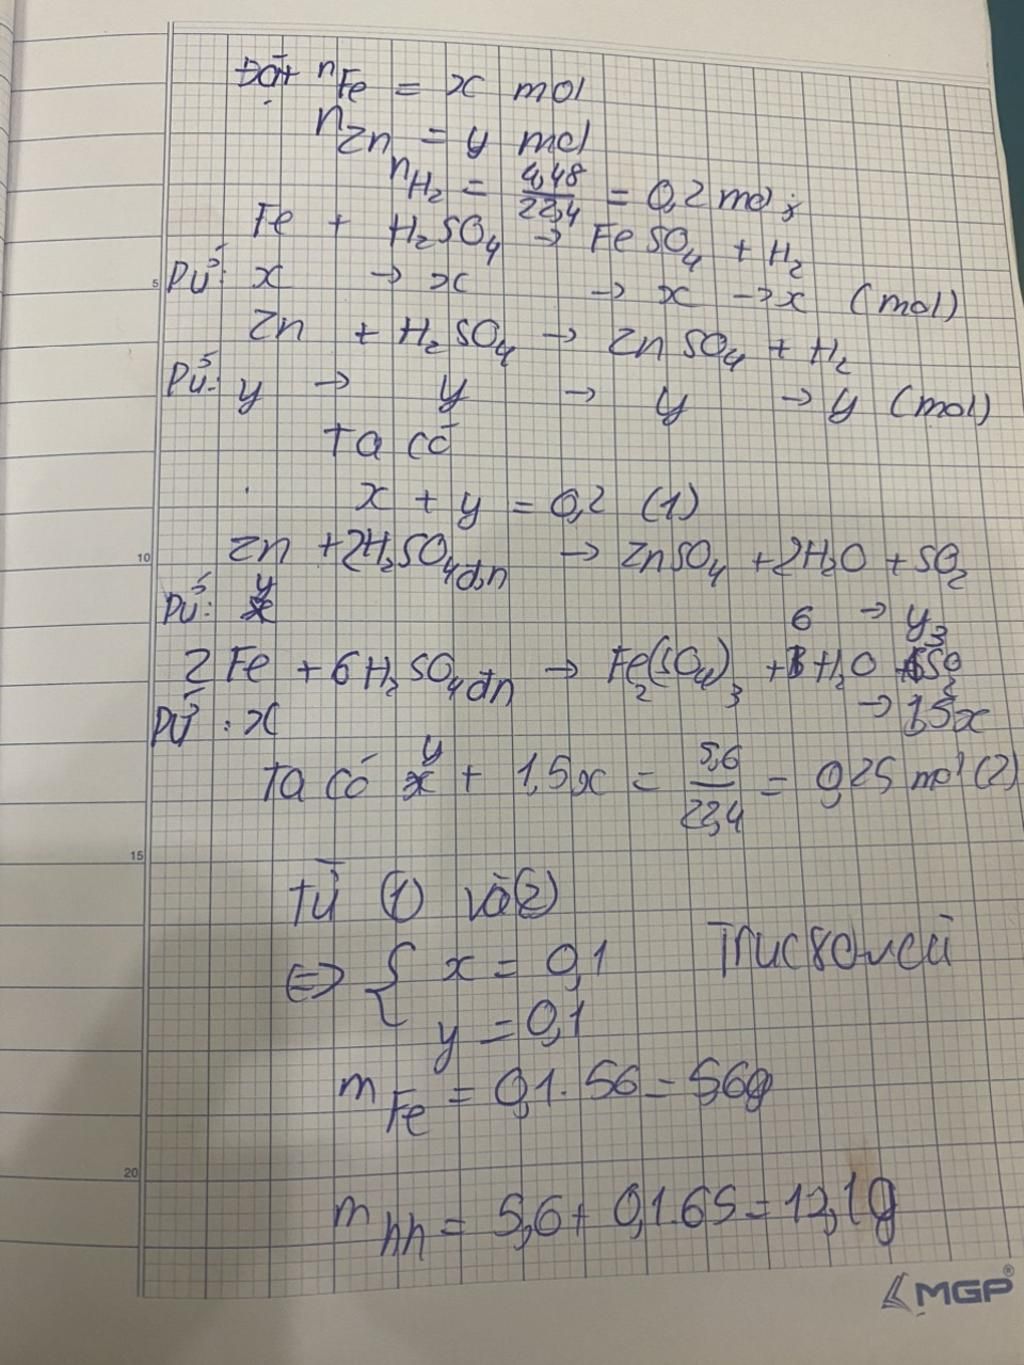 Đặt nFe = x mol
nZn = y mol
nH2 = 4,48/22,4 = 0,2 mol;
Fe + H2SO4 → FeSO4 + H2
5
PƯ: x → x → x → x (mol)
Zn + H2SO4 → ZnSO4 + H2
PƯ: y → y → y → y (mol)
Ta có
x + y = 0,2 (1)
10
Zn + 2H2SO4đn → ZnSO4 + 2H2O + SO2
PƯ: y → y
2Fe + 6H2SO4đn → Fe2(SO4)3 + 6H2O + 3SO2
PƯ: x → 1,5x
Ta có y + 1,5x = 5,6/22,4 = 0,25 mol (2)
15
Từ (1) và (2)
⇔ { x = 0,1
y = 0,1
mFe = 0,1.56 = 5,6g
20
mhh = 5,6 + 0,1.65 = 12,1g
MGP®